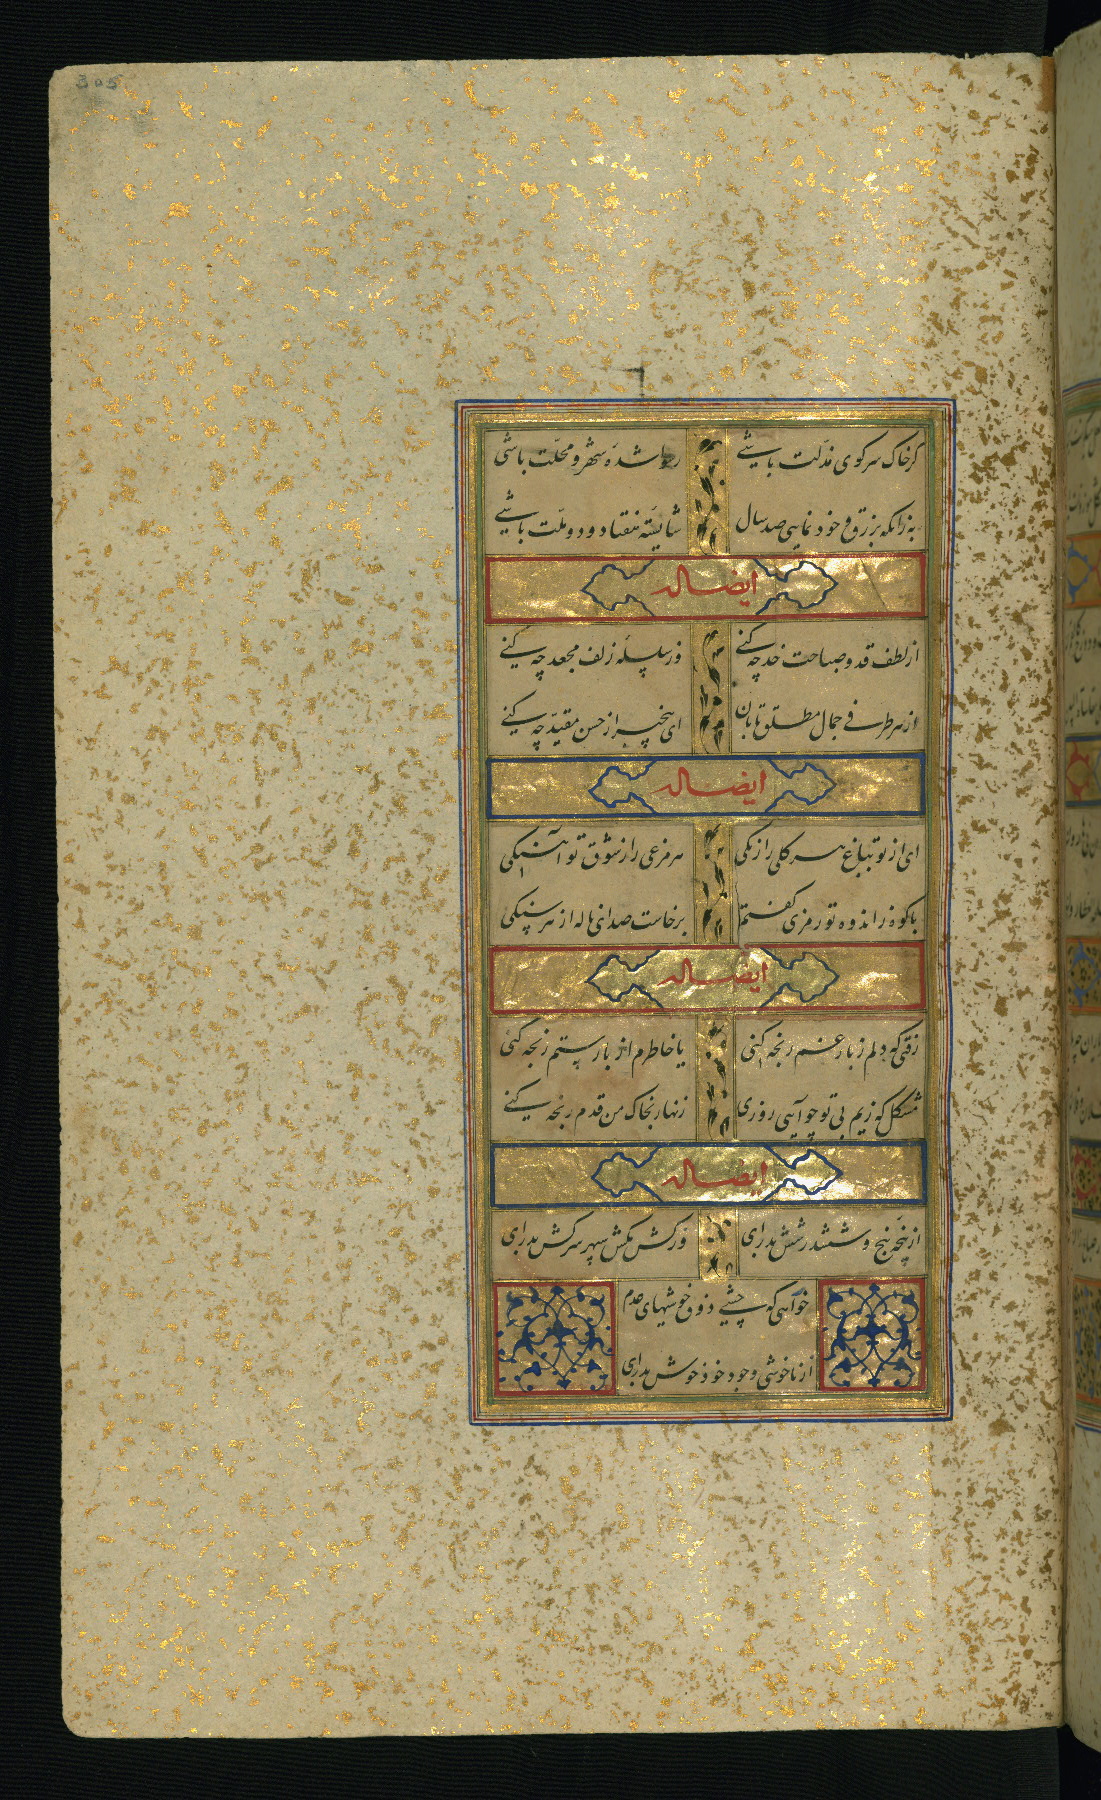 305
گر خاک سر کوی مذلت باشی
رسوا شده شهر و محلت باشی
به زانکه بزرق و خود نمایی صد سال
شایسته هفتاد و دو ملت باشی
ایضا له
از لطف قد و صباحت خد چه کنی
وز سلسله زلف مجعد چه کنی
از هر طرفی جمال مطلق تابان
ای بیخبر از حسن مقید چه کنی
ایضا له
ای از تو بباغ هر گلی را رنگی
هر مرغی را ز شوق تو آهنگی
با کوه ز اندوه تو رمزی گفتم
برخاست صدای ناله از هر سنگی
ایضا له
زقتی که دلم ز بار غم رنجه کنی
یا خاطرم از بار ستم رنجه کنی
مشکل که زیم بی تو چو آیی روزی
زنهار بخاک من قدم رنجه کنی
ایضا له
از پنجه پنج و ششدر شش بدرآی
وز کش مکش سپهر سرکش بدرآی
خواهی که چشی ذوق خوشیهای عدم
از ناخوشی وجود خود خوش بدرآی